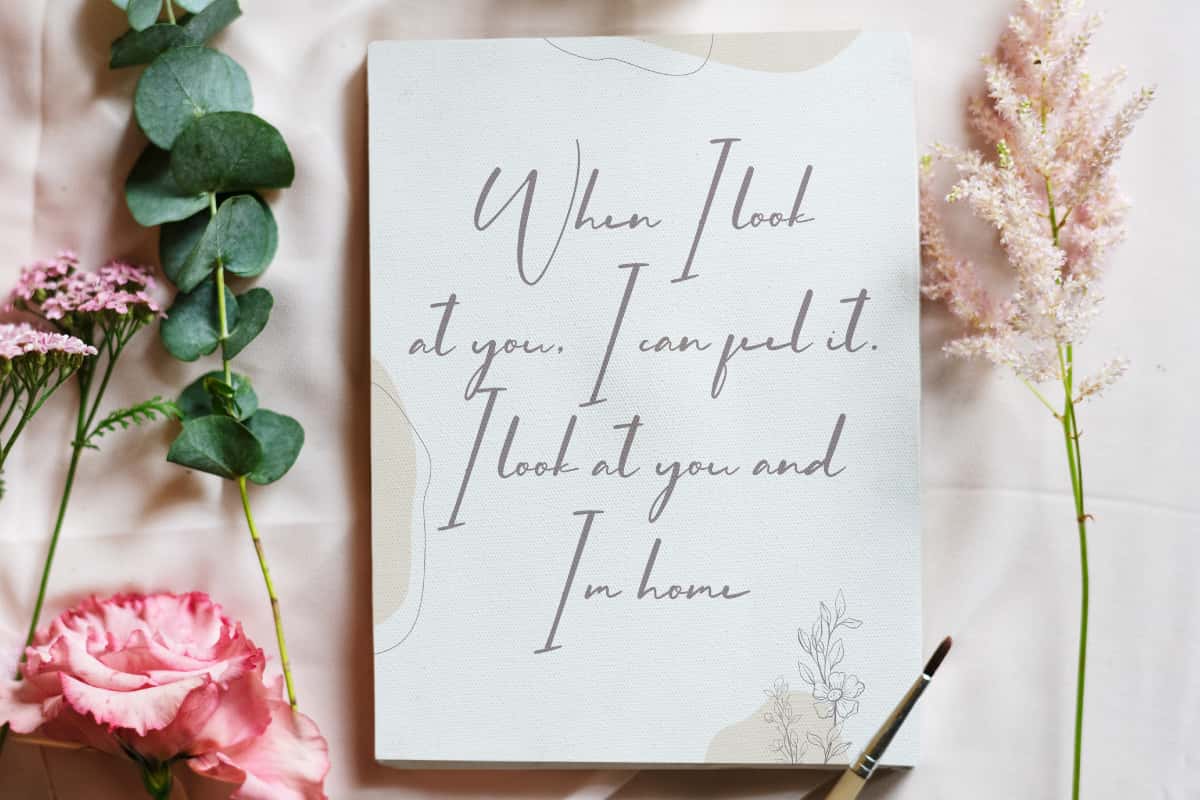 When I look
at you, I can feel it.
I look at you and
I'm home